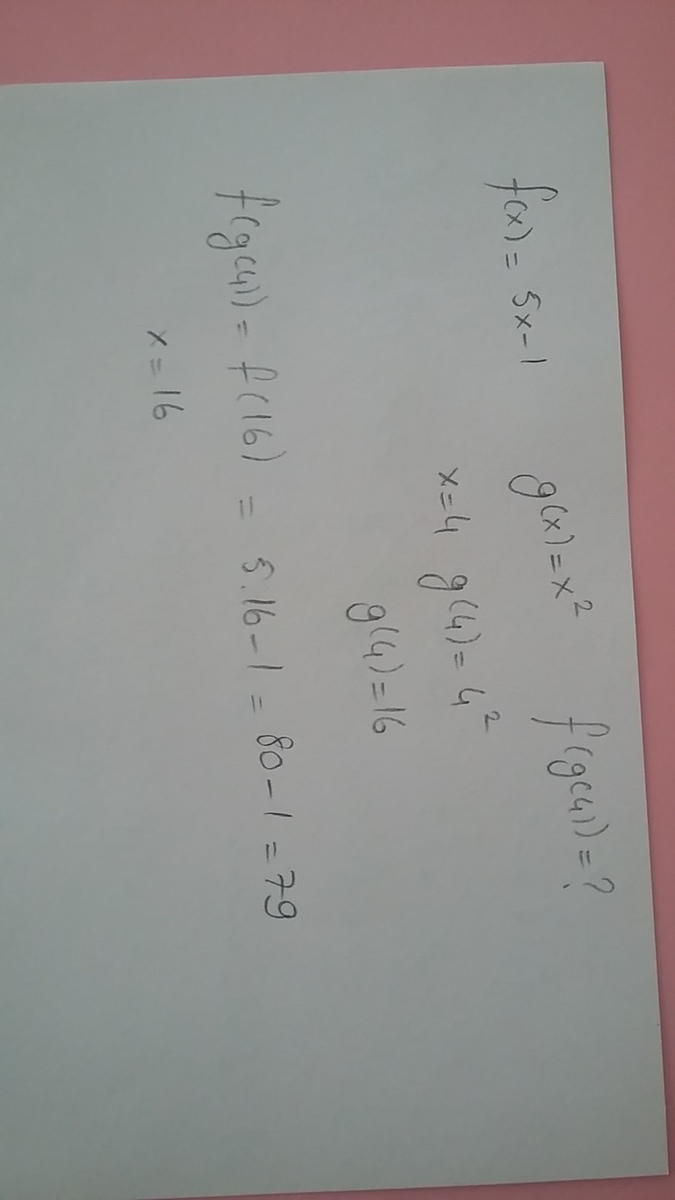 f(x) = 5x-1 g(x)=x² f(g(4))=?
x=4 g(4)=4²
g(4)=16
f(g(4))=f(16) = 5.16-1=80-1=79
x=16